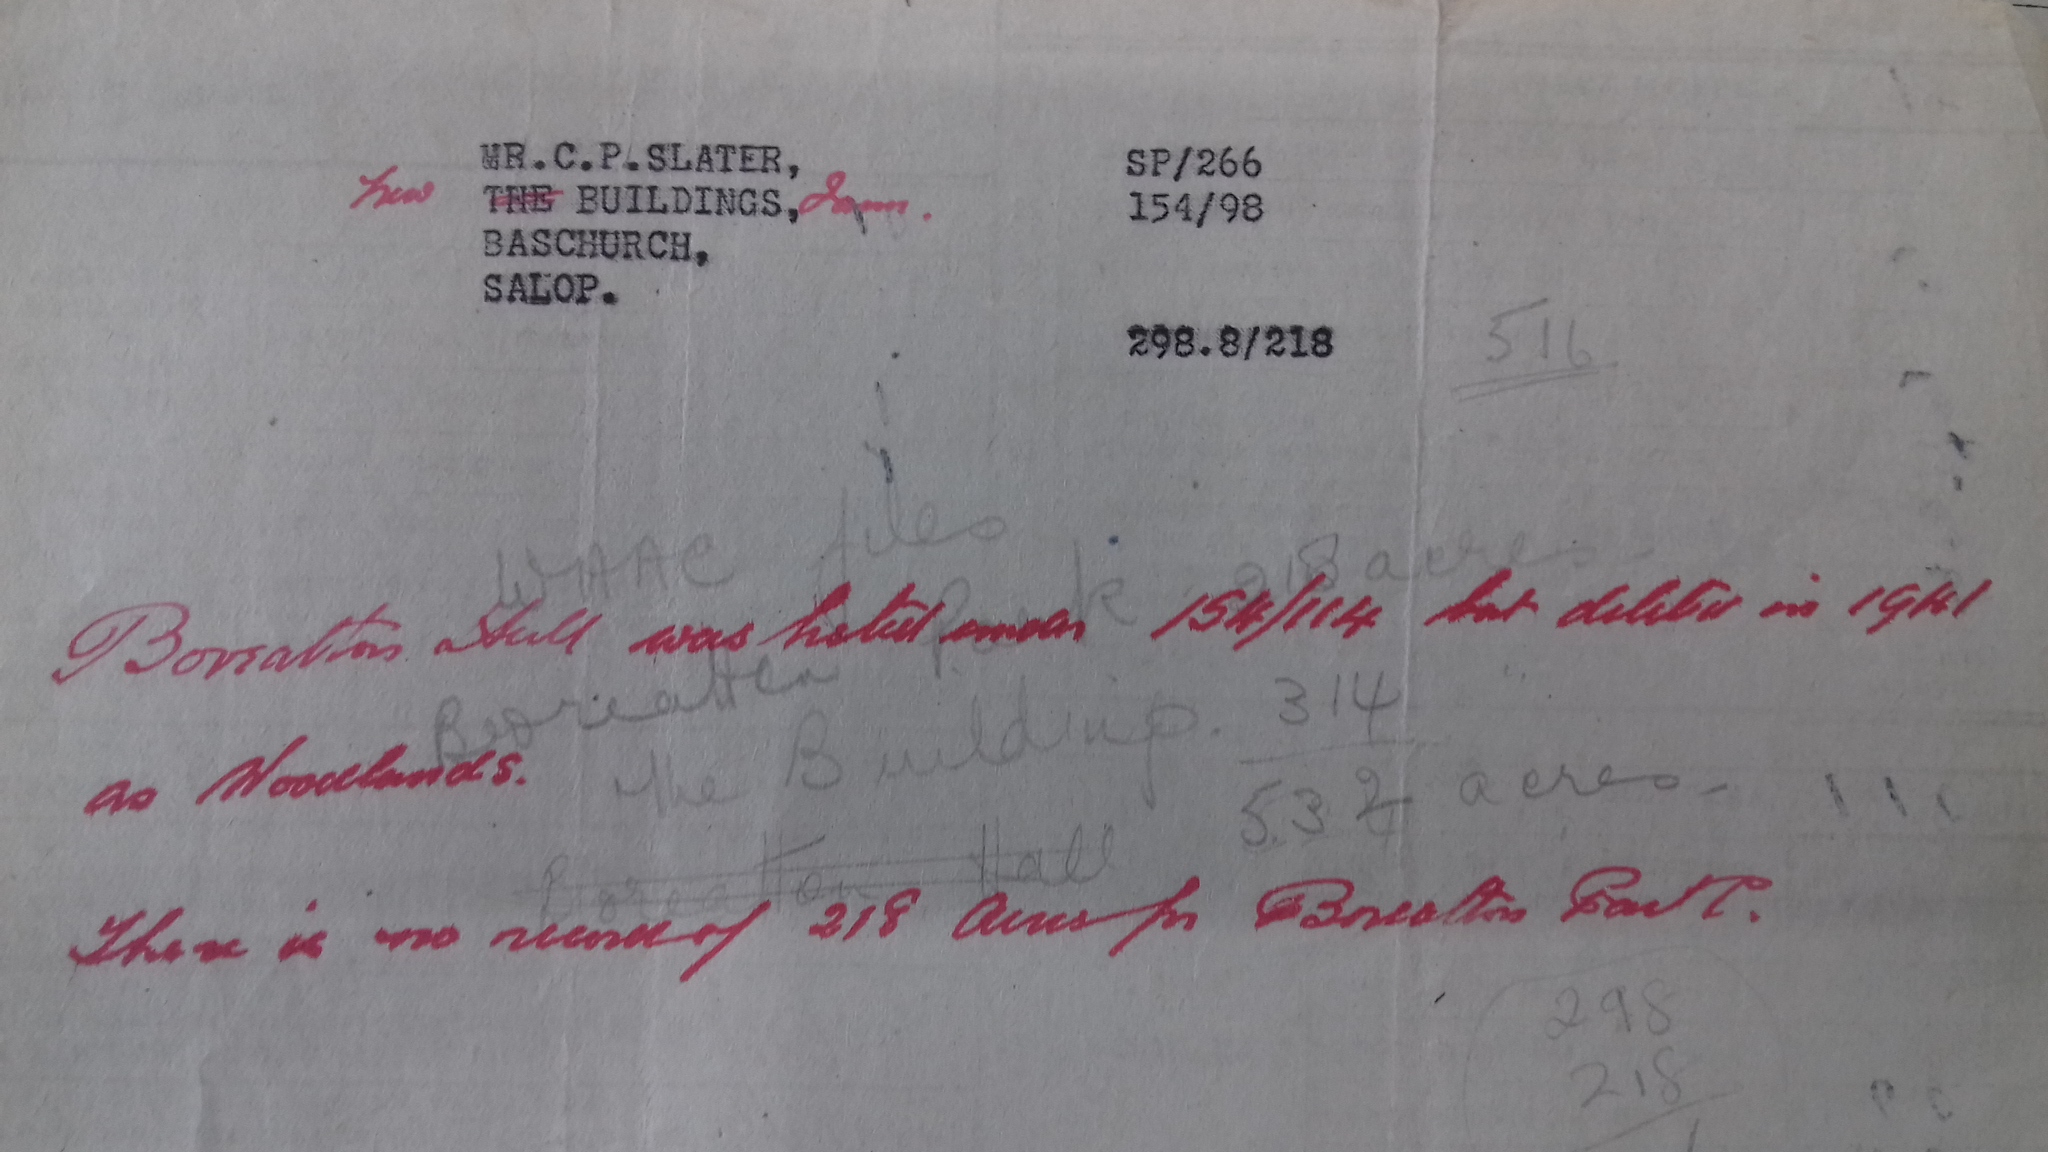 MR.C.P.SLATER, SP/266
New THE BUILDINGS, Farm. 154/98
BASCHURCH,
SALOP.
298.8/218 516
WAAC files
Boreatton Park 218 acres
Boreatton Hall was listed under 154/114 but deleted in 1941
The Buildings. 314
as Woodlands.
532 acres
Boreatton Hall
There is no record of 218 Acres for Boreatton Park.
298
218